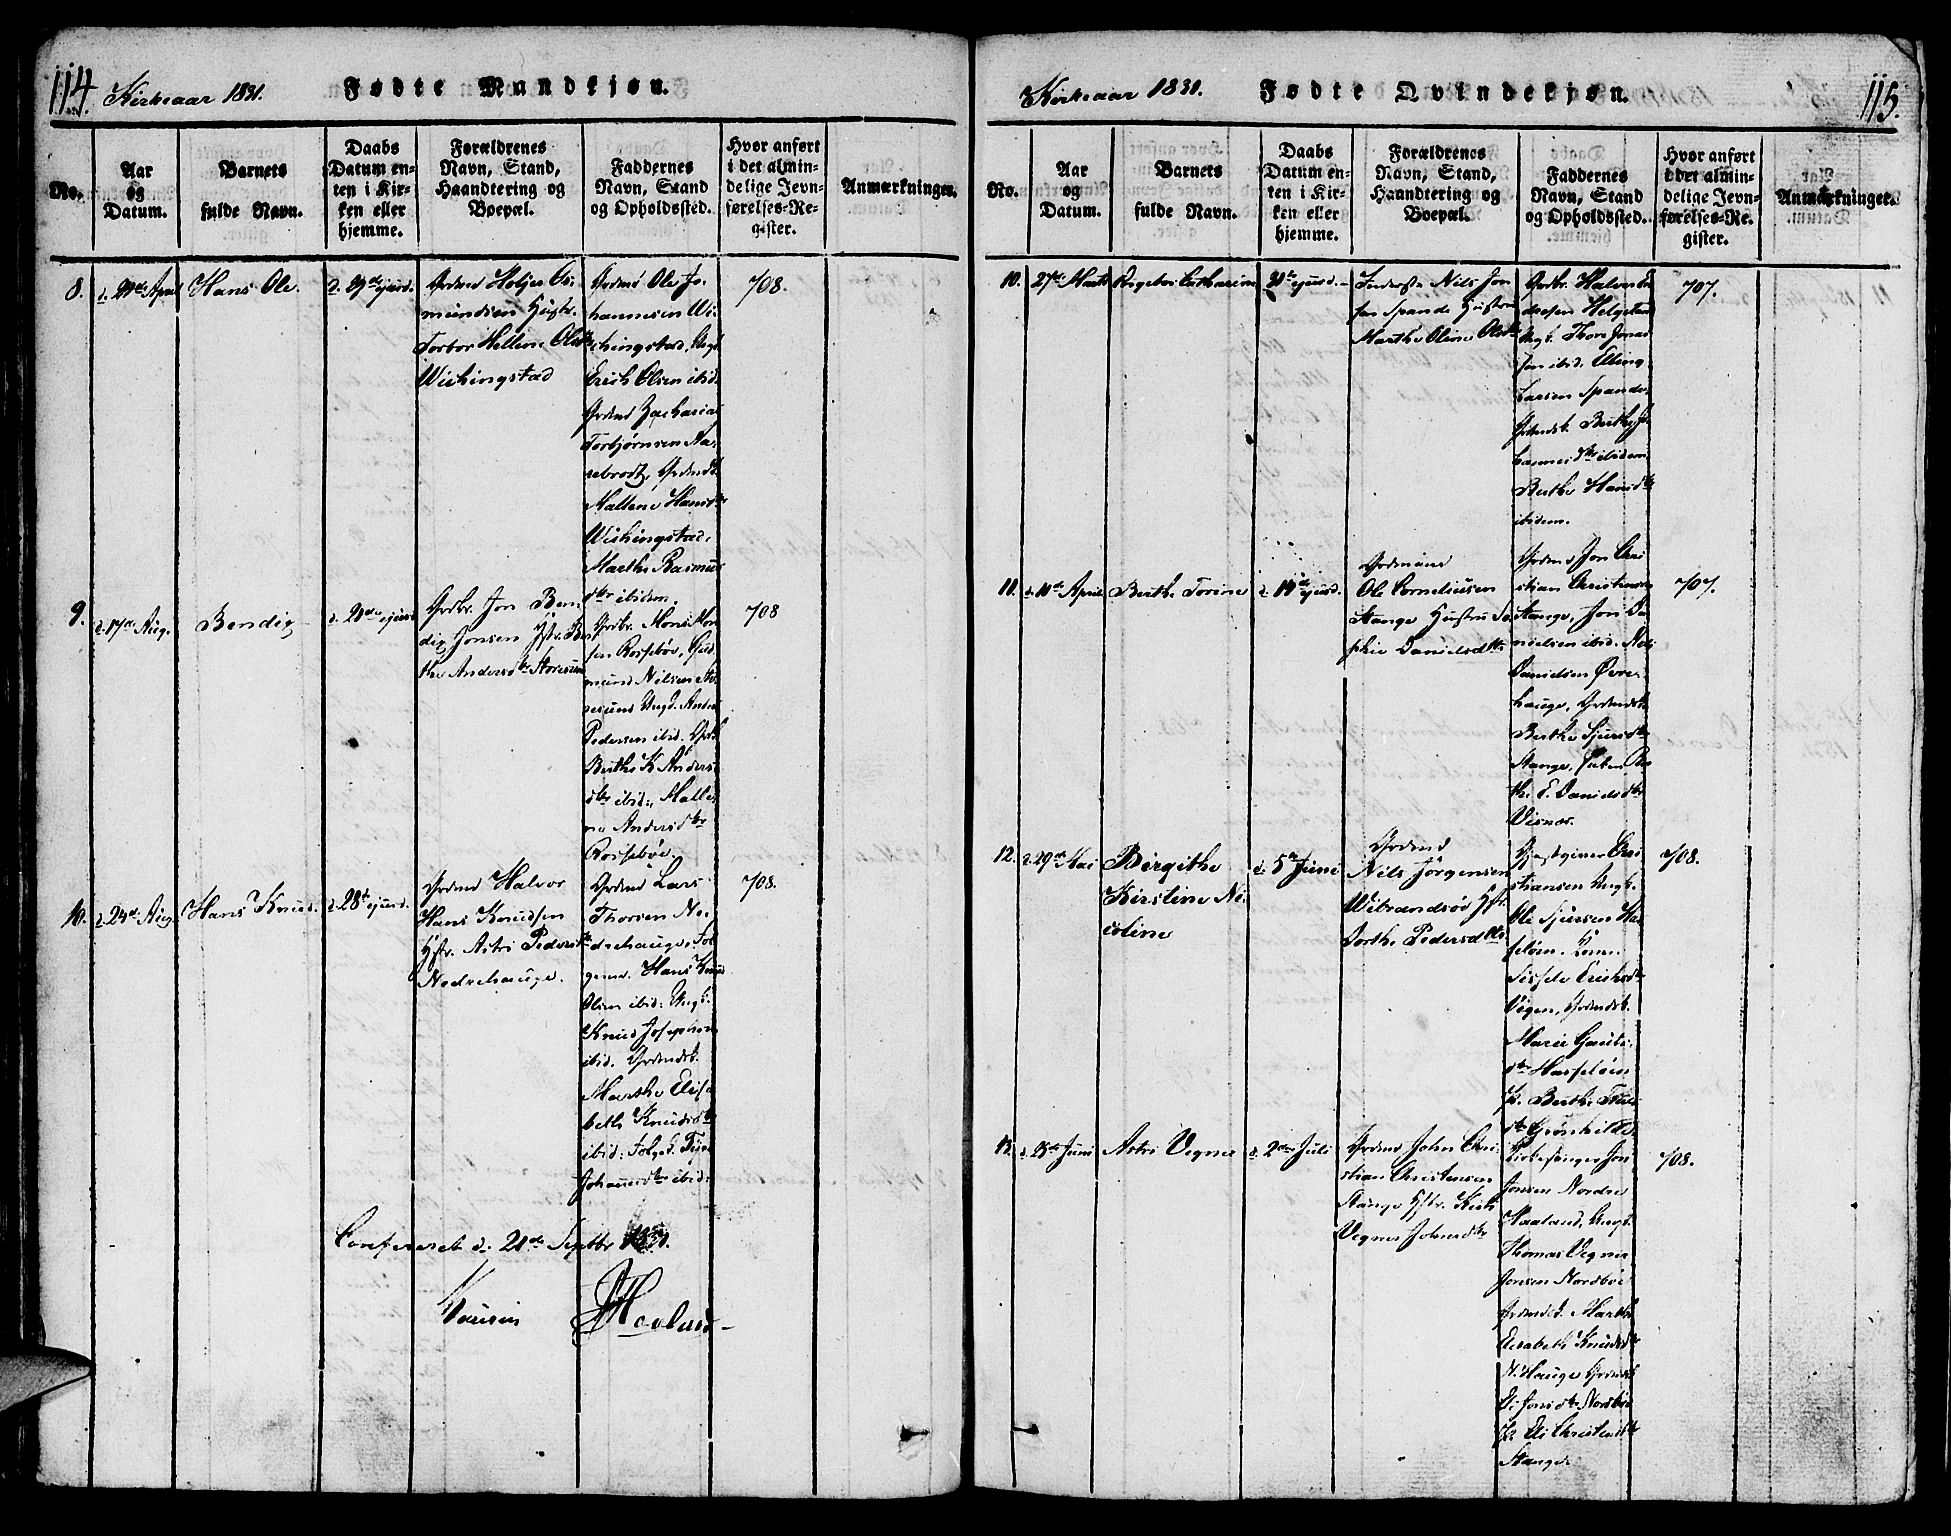 114.
Kirkeaar 1831.
Fødte Mandkjøn.
No.
Aar
og
Datum.
Barnets
fulde Navn.
Daabs
Datum en-
ten i Kir-
ken eller
hjemme.
Forældrenes
Navn, Stand,
Haandtering og
Boepæl.
Faddernes
Navn, Stand
og Opholdssted.
Hvor anført
i det almin-
delige Jevn-
førelses-Re-
gister.
Anmærkninger.
8.
April
Hans Ole
d. 29de ejusd.
Grdmd Holjer As-
mundsen Hustr.
Torbor Hellene Olsdtr
Wichingstad
Grdmd Ole Jo-
hannesen Wi-
chingstad, Ungk.
Erich Olsen ibid.
Grdmd Zacharias
Torbjørnsen Aa-
rebrodt, Grdmdsk.
Mallene Hansdtr
Wichingstad,
Marthe Rasmus-
dtr ibidem.
708.
9.
d. 17de Aug.
Bendig
d. 21de ejusd.
Grdbr. Jon Ben-
dig Jonsen Hstr. Ber-
the Andersdtr Storesund
Grdbr. Mons Mon-
sen Rossebøe, Gud-
mund Nilsen Sto-
resund Ungd. Anders
Pedersen ibid. Grdk.
Berthe K. Anders-
dtr ibid., Malle-
ne Andersdtr
Rossebøe.
708
10.
d. 24de Aug.
Hans Knud.
d. 28de ejusd.
Grdmd Halvor
Hans Knudsen
Hstr. Astri Pedersdtr
Nedrehauge.
Grdmd Lars
Thorsen Ne-
drehauge, Fol-
gemd. Hans Knud
Olsen ibid: Ungk.
Knud Josephsen
ibid. Grdmdsk.
Marthe Elisa-
beth Knudsdtr
ibid: Folged.
Johannesdtr ibid:
708.
Confereret d: 21de Septbr 1831.
115.
Kirkeaar 1831.
Fødte Qvindekjøn.
No.
Aar
og
Datum.
Barnets
fulde Navn.
Daabs
Datum en-
ten i Kir-
ken eller
hjemme.
Forældrenes
Navn, Stand,
Haandtering og
Boepæl.
Faddernes
Navn, Stand
og Opholdssted.
Hvor anført
i det almin-
delige Jevn-
førelses-Re-
gister.
Anmærkninger.
10.
27de Marts
Ingebor Catharine
31te ejusd.
Inderste Nils Jon-
sen Spande Hustru
Marthe Oline Olsdtr
Grdbr. Halvor En-
dresen Helgeland
Ungk. Thore Jonas-
sen ibid. Elling
Larsen Spande.
Grdmdsk. Berthe Jo-
hannesdtr ibidem
Berthe Hansdtr
ibidem.
707.
11.
d. 10de April
Berthe Torine
d. 14de ejusd.
Grdmand
Ole Corneliussen
Stange Hustru So-
phie Danielsdtr
Grdmd Jon Chri-
stian Christensen
Stange, Jon Da-
nielsen ibid. Nils
Danielsen Øvre-
hauge, Grdmdsk.
Berthe Sjursdtr
Stange, Piken Ber-
the E. Danielsdtr
Visnæs.
707.
12.
d. 29de Mai
Birgithe
Kirstine Ni-
coline
d. 5te Juni
Grdmd
Nils Jørgensen
Wibrandsøe Hstr.
Dorthe Pedersdtr
Gjestgiver Chri-
stiansen Ungk.
Ole Sjursen Has-
seløen. Kone
Sissele Erichsdtr
Vogen, Grdmdsk.
Marie Gaute-
dtr Hasseløen
P. Berthe
dtr Grønhilde.
708.
13.
d. 25de Juni
Astri Vegner
d. 2den Juli
Grdmd John Chri-
stian Christensen
Stange Hstr.
Vegner Johnsdtr
Kirkesanger Jon
Jonsen Nordre
Haaland, Ungk.
Thomas Vegner
Jonsen Nordbøe
Grdmdsk. Marthe
Elisabeth Knudsdtr
N: Hauge Grdmdsk.
Eli Jonsdtr Nordbøe
P. Eli Christensdtr
Stange.
708.